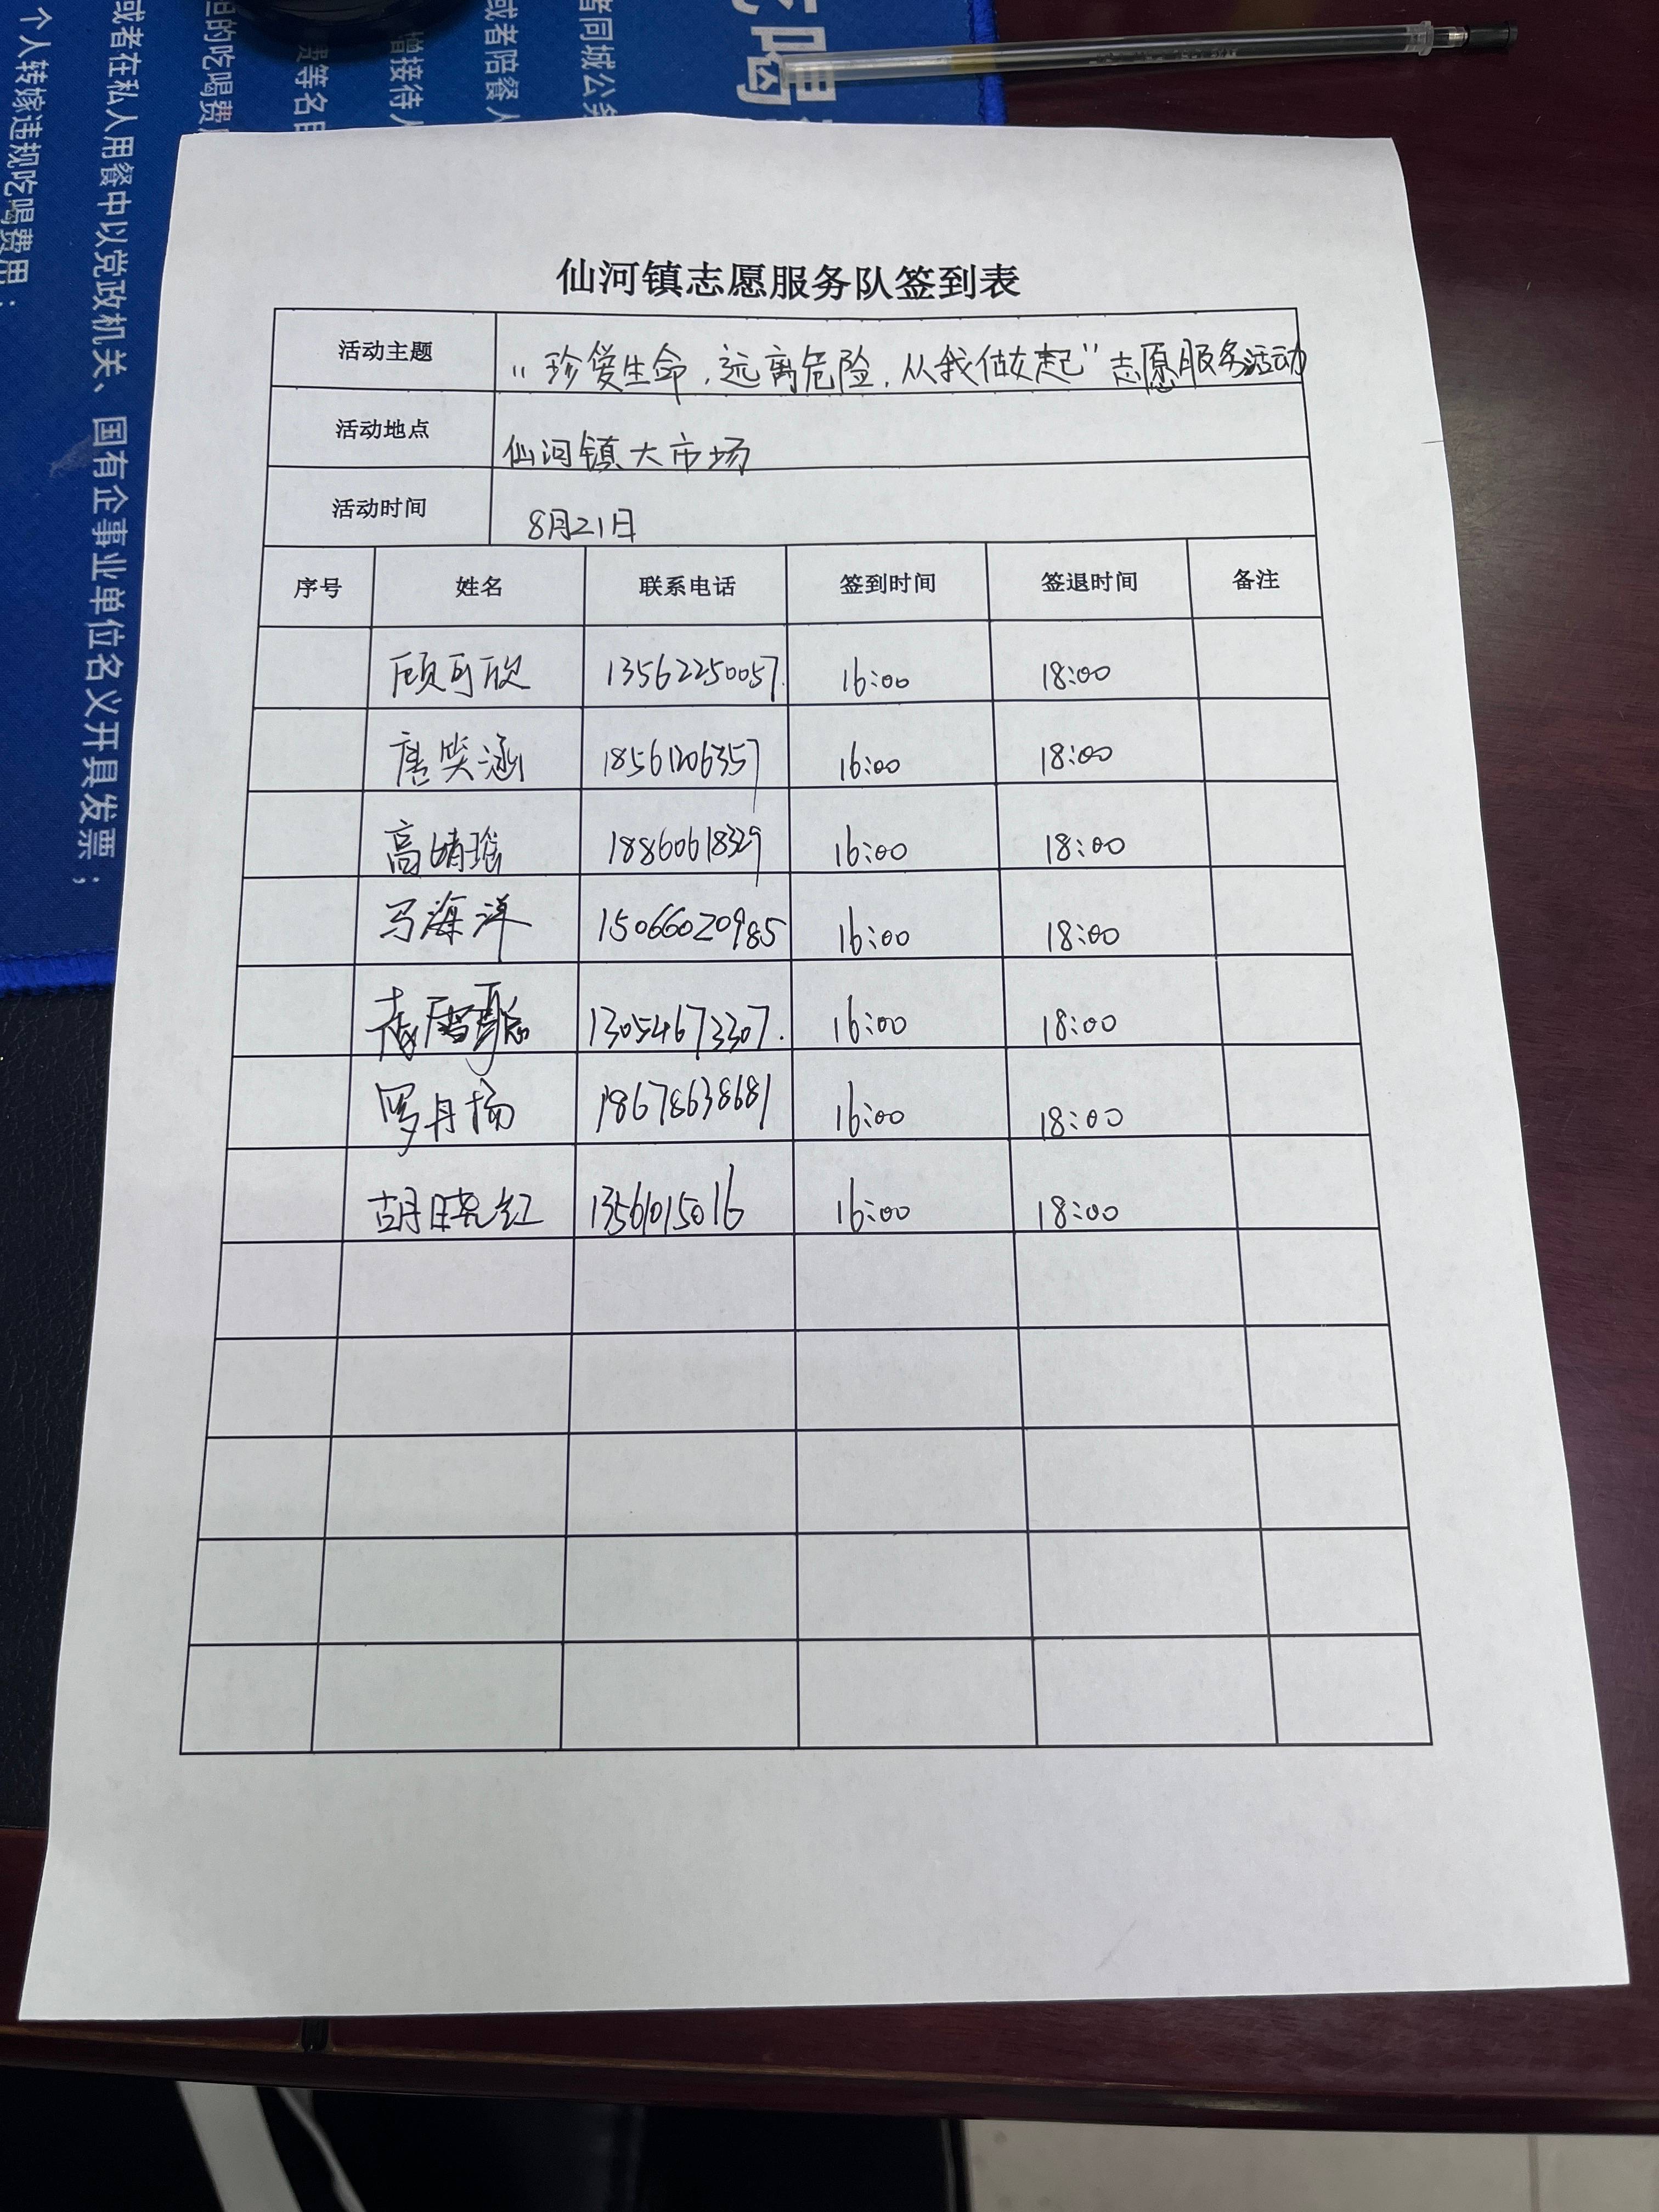 喝
者同城公务
或者陪餐人
增接待人
费等名目
担的吃喝费
或者在私人用餐中以党政机关、国有企事业单位名义开具发票；
个人转嫁违规吃喝费用；
仙河镇志愿服务队签到表
活动主题 “珍爱生命，远离危险，从我做起”志愿服务活动
活动地点 仙河镇大市场
活动时间 8月21日
序号 姓名 联系电话 签到时间 签退时间 备注
顾可欣 13562250057. 16:00 18:00
唐笑涵 18561206357 16:00 18:00
高婧瑶 18860618329 16:00 18:00
马海洋 15066020985 16:00 18:00
13054673307. 16:00 18:00
罗丹扬 18678638681 16:00 18:00
胡晓红 1356015016 16:00 18:00